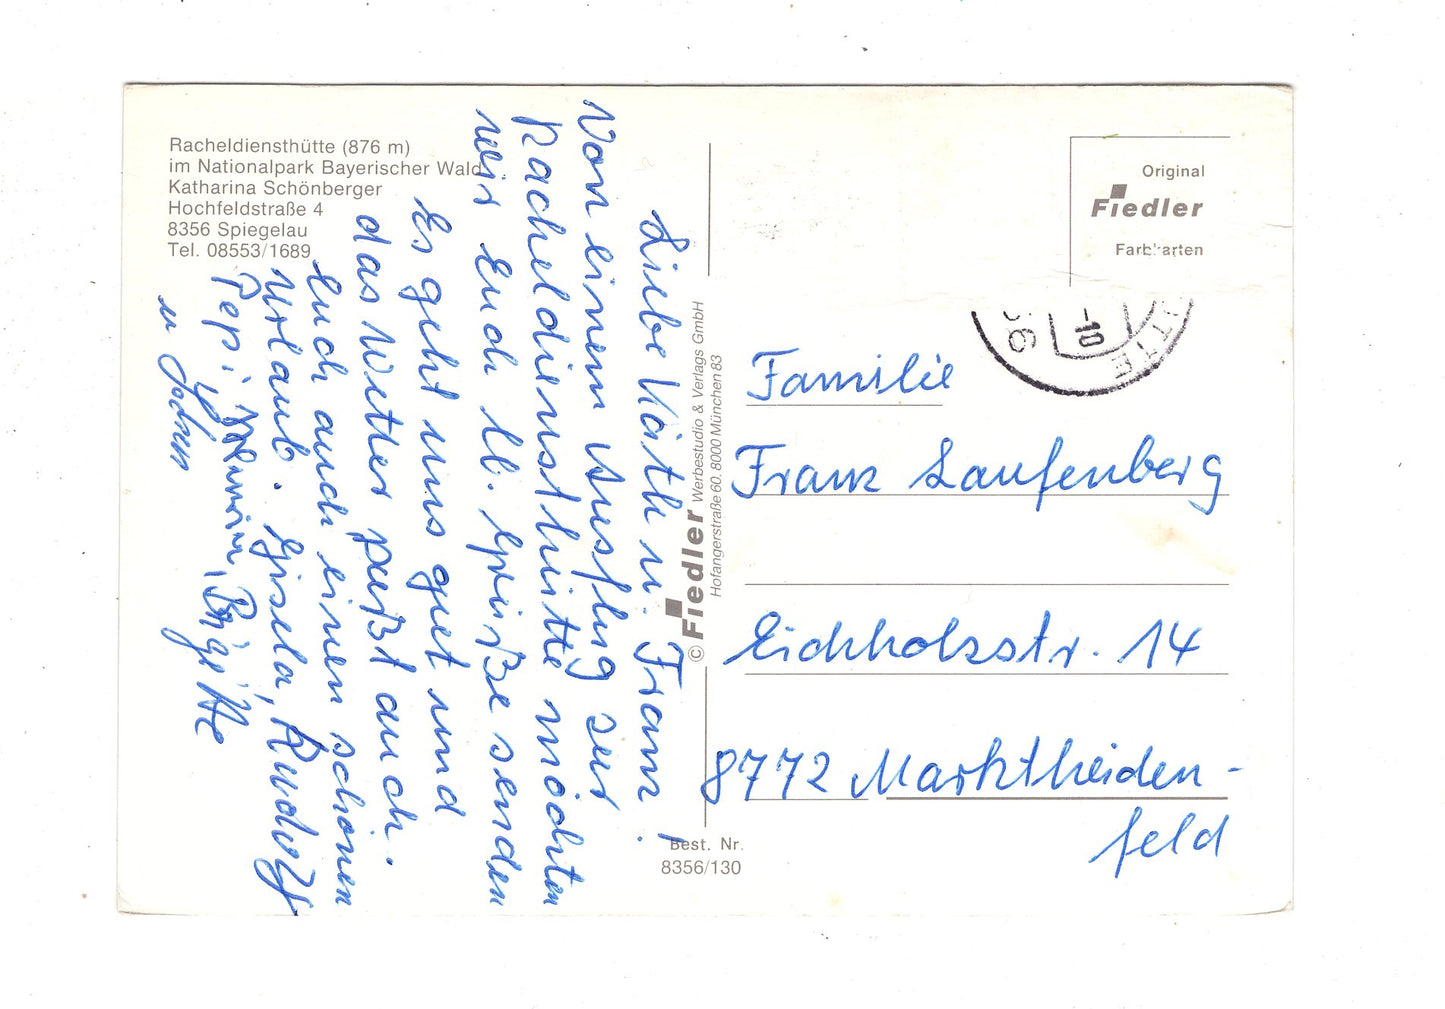 Racheldiensthütte (876 m)
im Nationalpark Bayerischer Wald
Katharina Schönberger
Hochfeldstraße 4
8356 Spiegelau
Tel. 08553/1689
Liebe Käthe u. Franz!
Von einem Ausflug zur
Racheldiensthütte möchten
wir Euch lb. Grüße senden
Es geht uns gut und
das Wetter paßt auch.
Euch auch einen schönen
Urlaub. Gisela, Rudolf
Pepi Brigitte
u
© Fiedler Werbestudio & Verlags GmbH
Hofangerstraße 60. 8000 München 83
Best. Nr.
8356/130
Original
Fiedler
Farbkarten
-10
Familie
Franz Laufenberg
Eichholzstr. 14
8772 Marktheiden-
feld